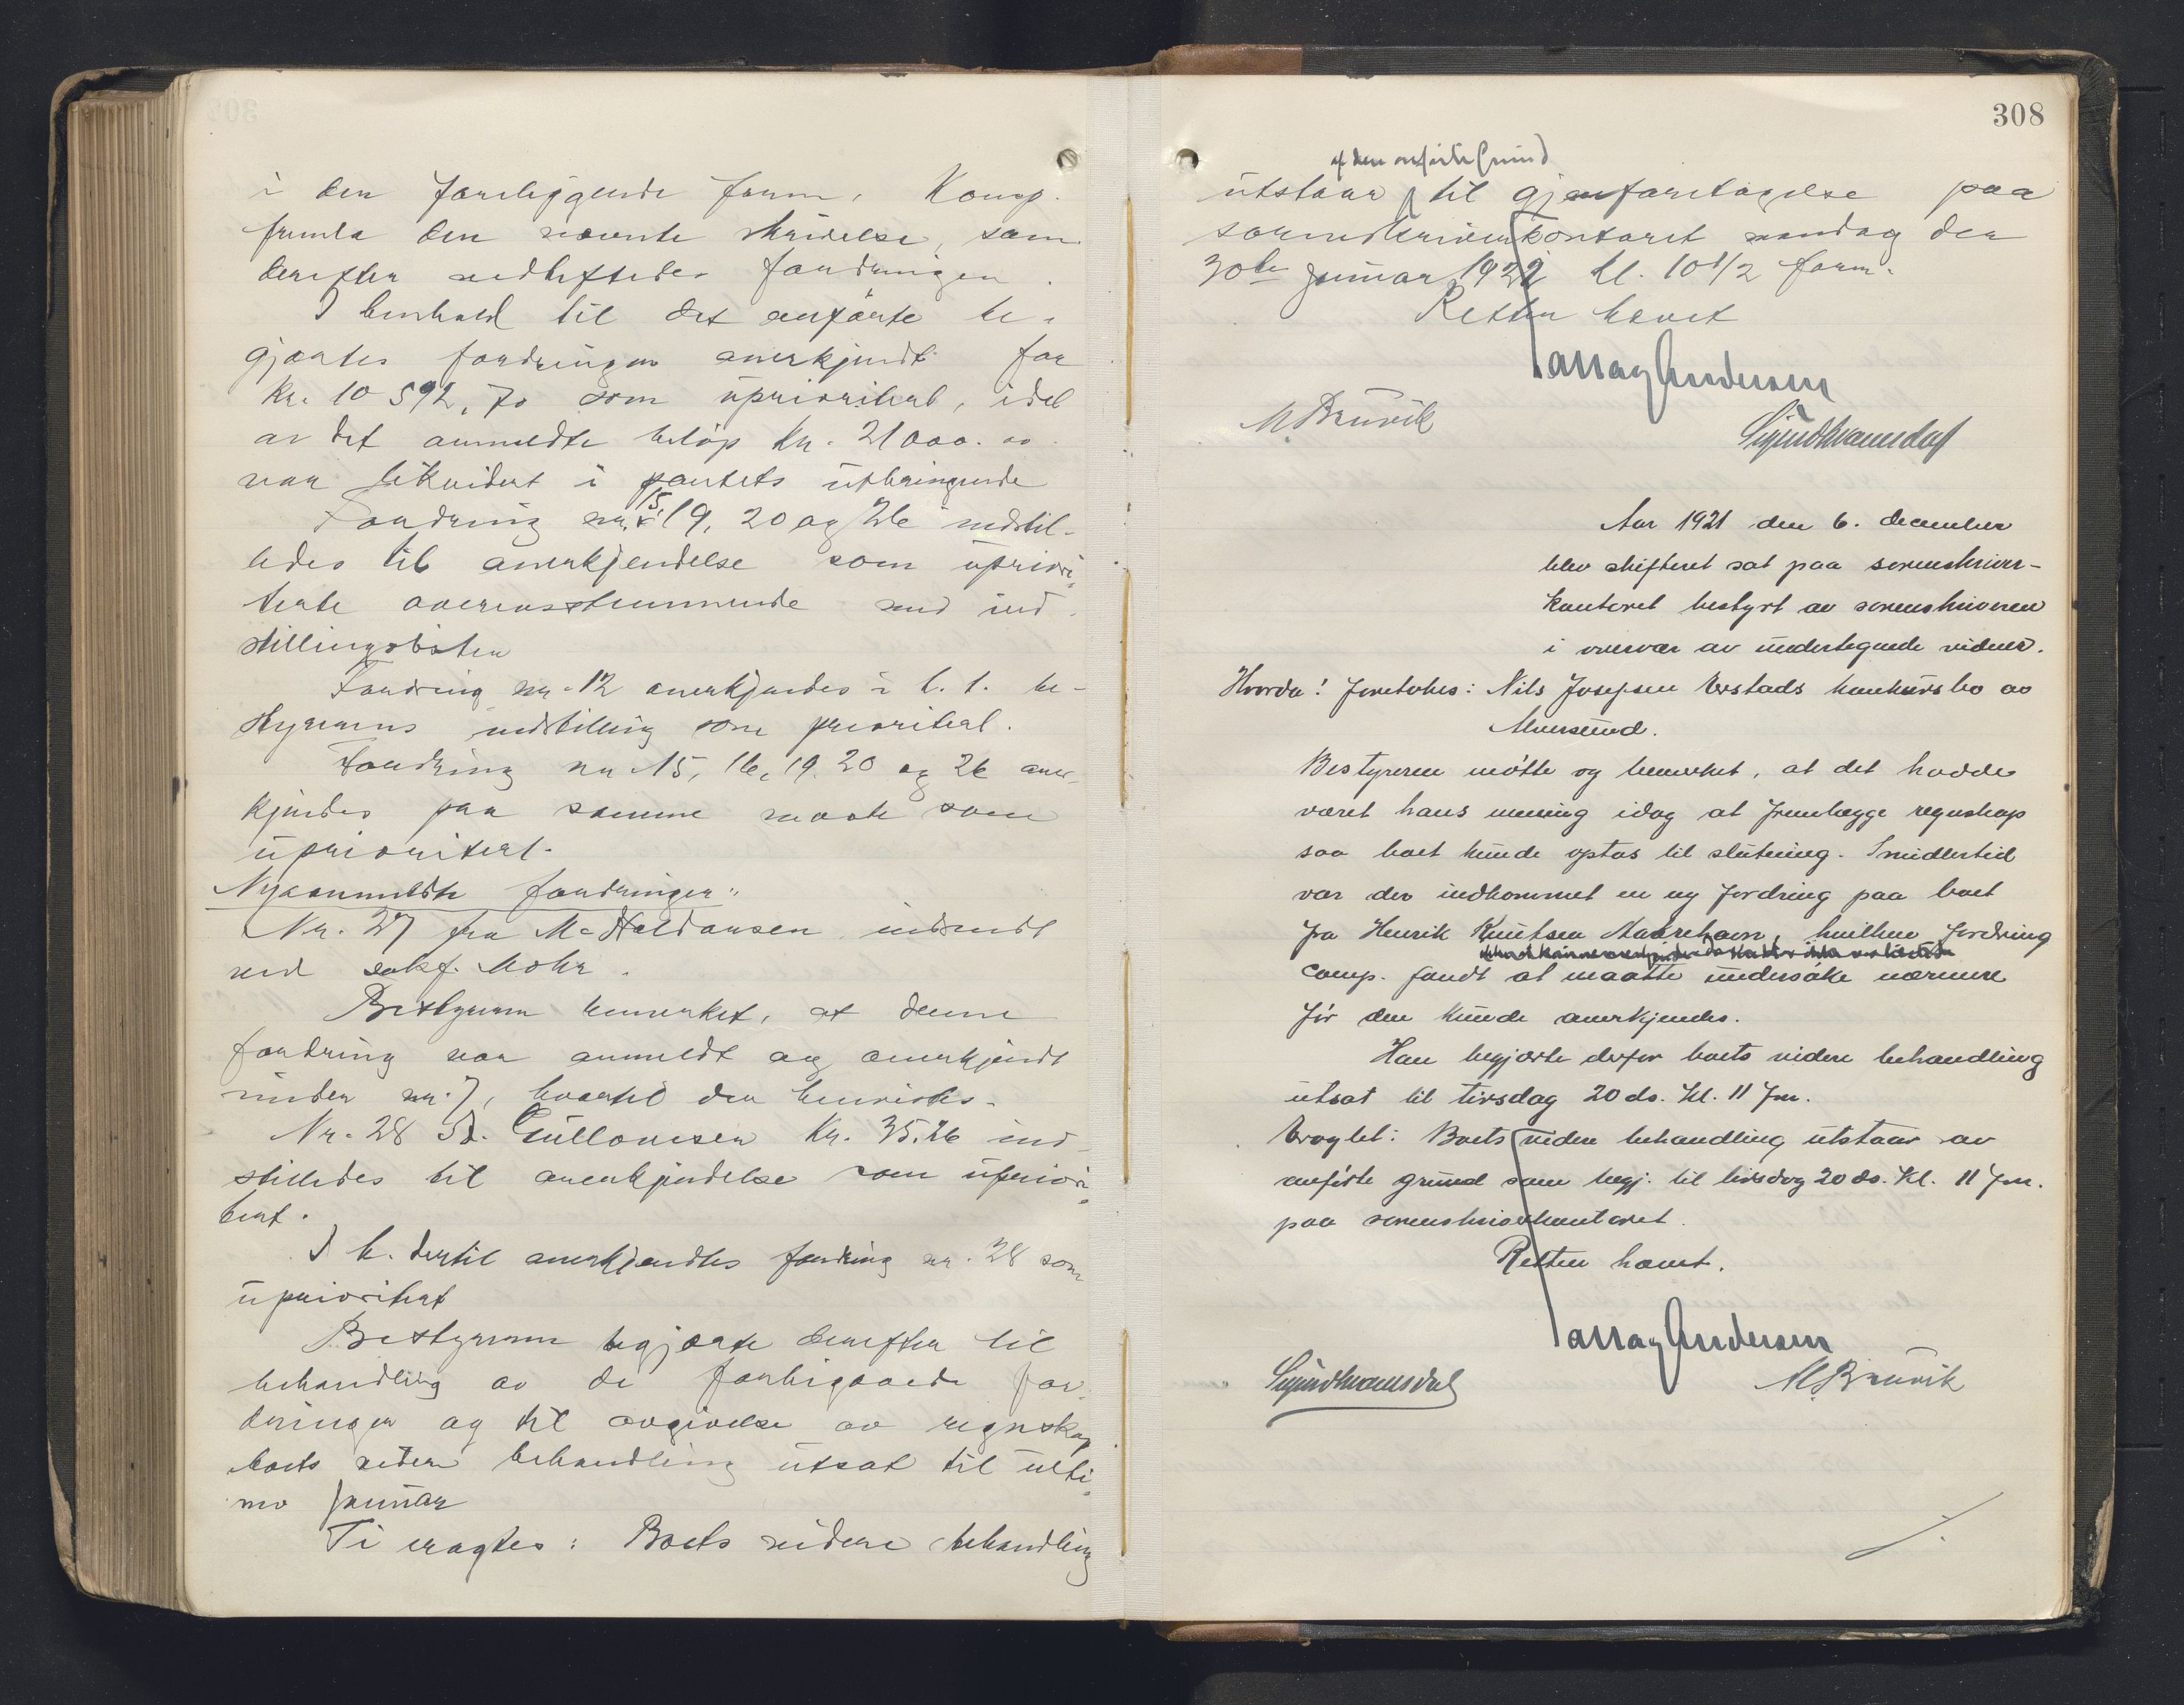 i den foreliggende form. Komp.
fremla den nævnte skrivelse, som
derefter vedheftedes fordringen.
I henhold til det anførte be-
gjærtes fordringen anerkjendt for
Kr. 10 592,70 som uprioritert, idet
av det anmeldte beløp Kr. 21000.00
var likvidert i pantets utbringende
Fordring nr. 15, 19, 20 og 26 indstil-
ledes til anerkjendelse som upriori-
terte overensstemmende med ind-
stillingslisten
Fordring nr. 12 anerkjendes i h. t. be-
styrerens indstilling som prioritert.
Fordring nr 15, 16, 19. 20 og 26 aner-
kjendes paa samme maate som
uprioritert.
Nyanmeldte fordringer:
Nr. 27 fra M. Haldansen indsendt
ved sakf. Mohr.
Bestyreren bemerket, at denne
fordring var anmeldt og anerkjendt
under nr. 7, hvortil den henvistes.
Nr. 28 Gullovesen Kr. 35.26 ind-
stilledes til anerkjendelse som upriori-
tert.
I h. dertil anerkjendtes fordring nr. 28 som
uprioritert
Bestyreren begjærte derefter til
behandling av de forbigaaede for-
dringer og til avgivelse av regnskap
boets videre behandling utsat til ulti-
mo januar
Ti eragtes: Boets videre behandling
308
af den anførte Grund
utstaar til gjenforetagelse paa
sorenskriverkontoret mandag den
30te januar 1922 kl. 10 1/2 form.
Retten hævet
Andersen
M. Bruvik
Sigurd Kvamsdal
Aar 1921 den 6. december
blev skifteret sat paa sorenskriver-
kontoret bestyrt av sorenskriveren
i overvær av undertegnede vidner.
Hvorda! foretokes: Nils Josepsen Verstads konkursbo av
Alversund.
Bestyreren møtte og bemerket, at det hadde
været hans mening idag at fremlægge regnskap
saa boet kunde optas til slutning. Imidlertid
var der indkommet en ny fordring paa boet
fra Henrik Knutsen, hvilken fordring
comp. fandt at maatte undersøke nærmere
før den kunde anerkjendes.
Han begjærte derfor boets videre behandling
utsat til tirsdag 20 ds. Kl. 11 fm.
Eragtet: Boets videre behandling utstaar av
anførte grund som begj. til tirsdag 20 ds. Kl. 11 fm.
paa sorenskriverkontoret.
Retten hævet.
Andersen
Sigurd Kvamsdal
M. Bruvik